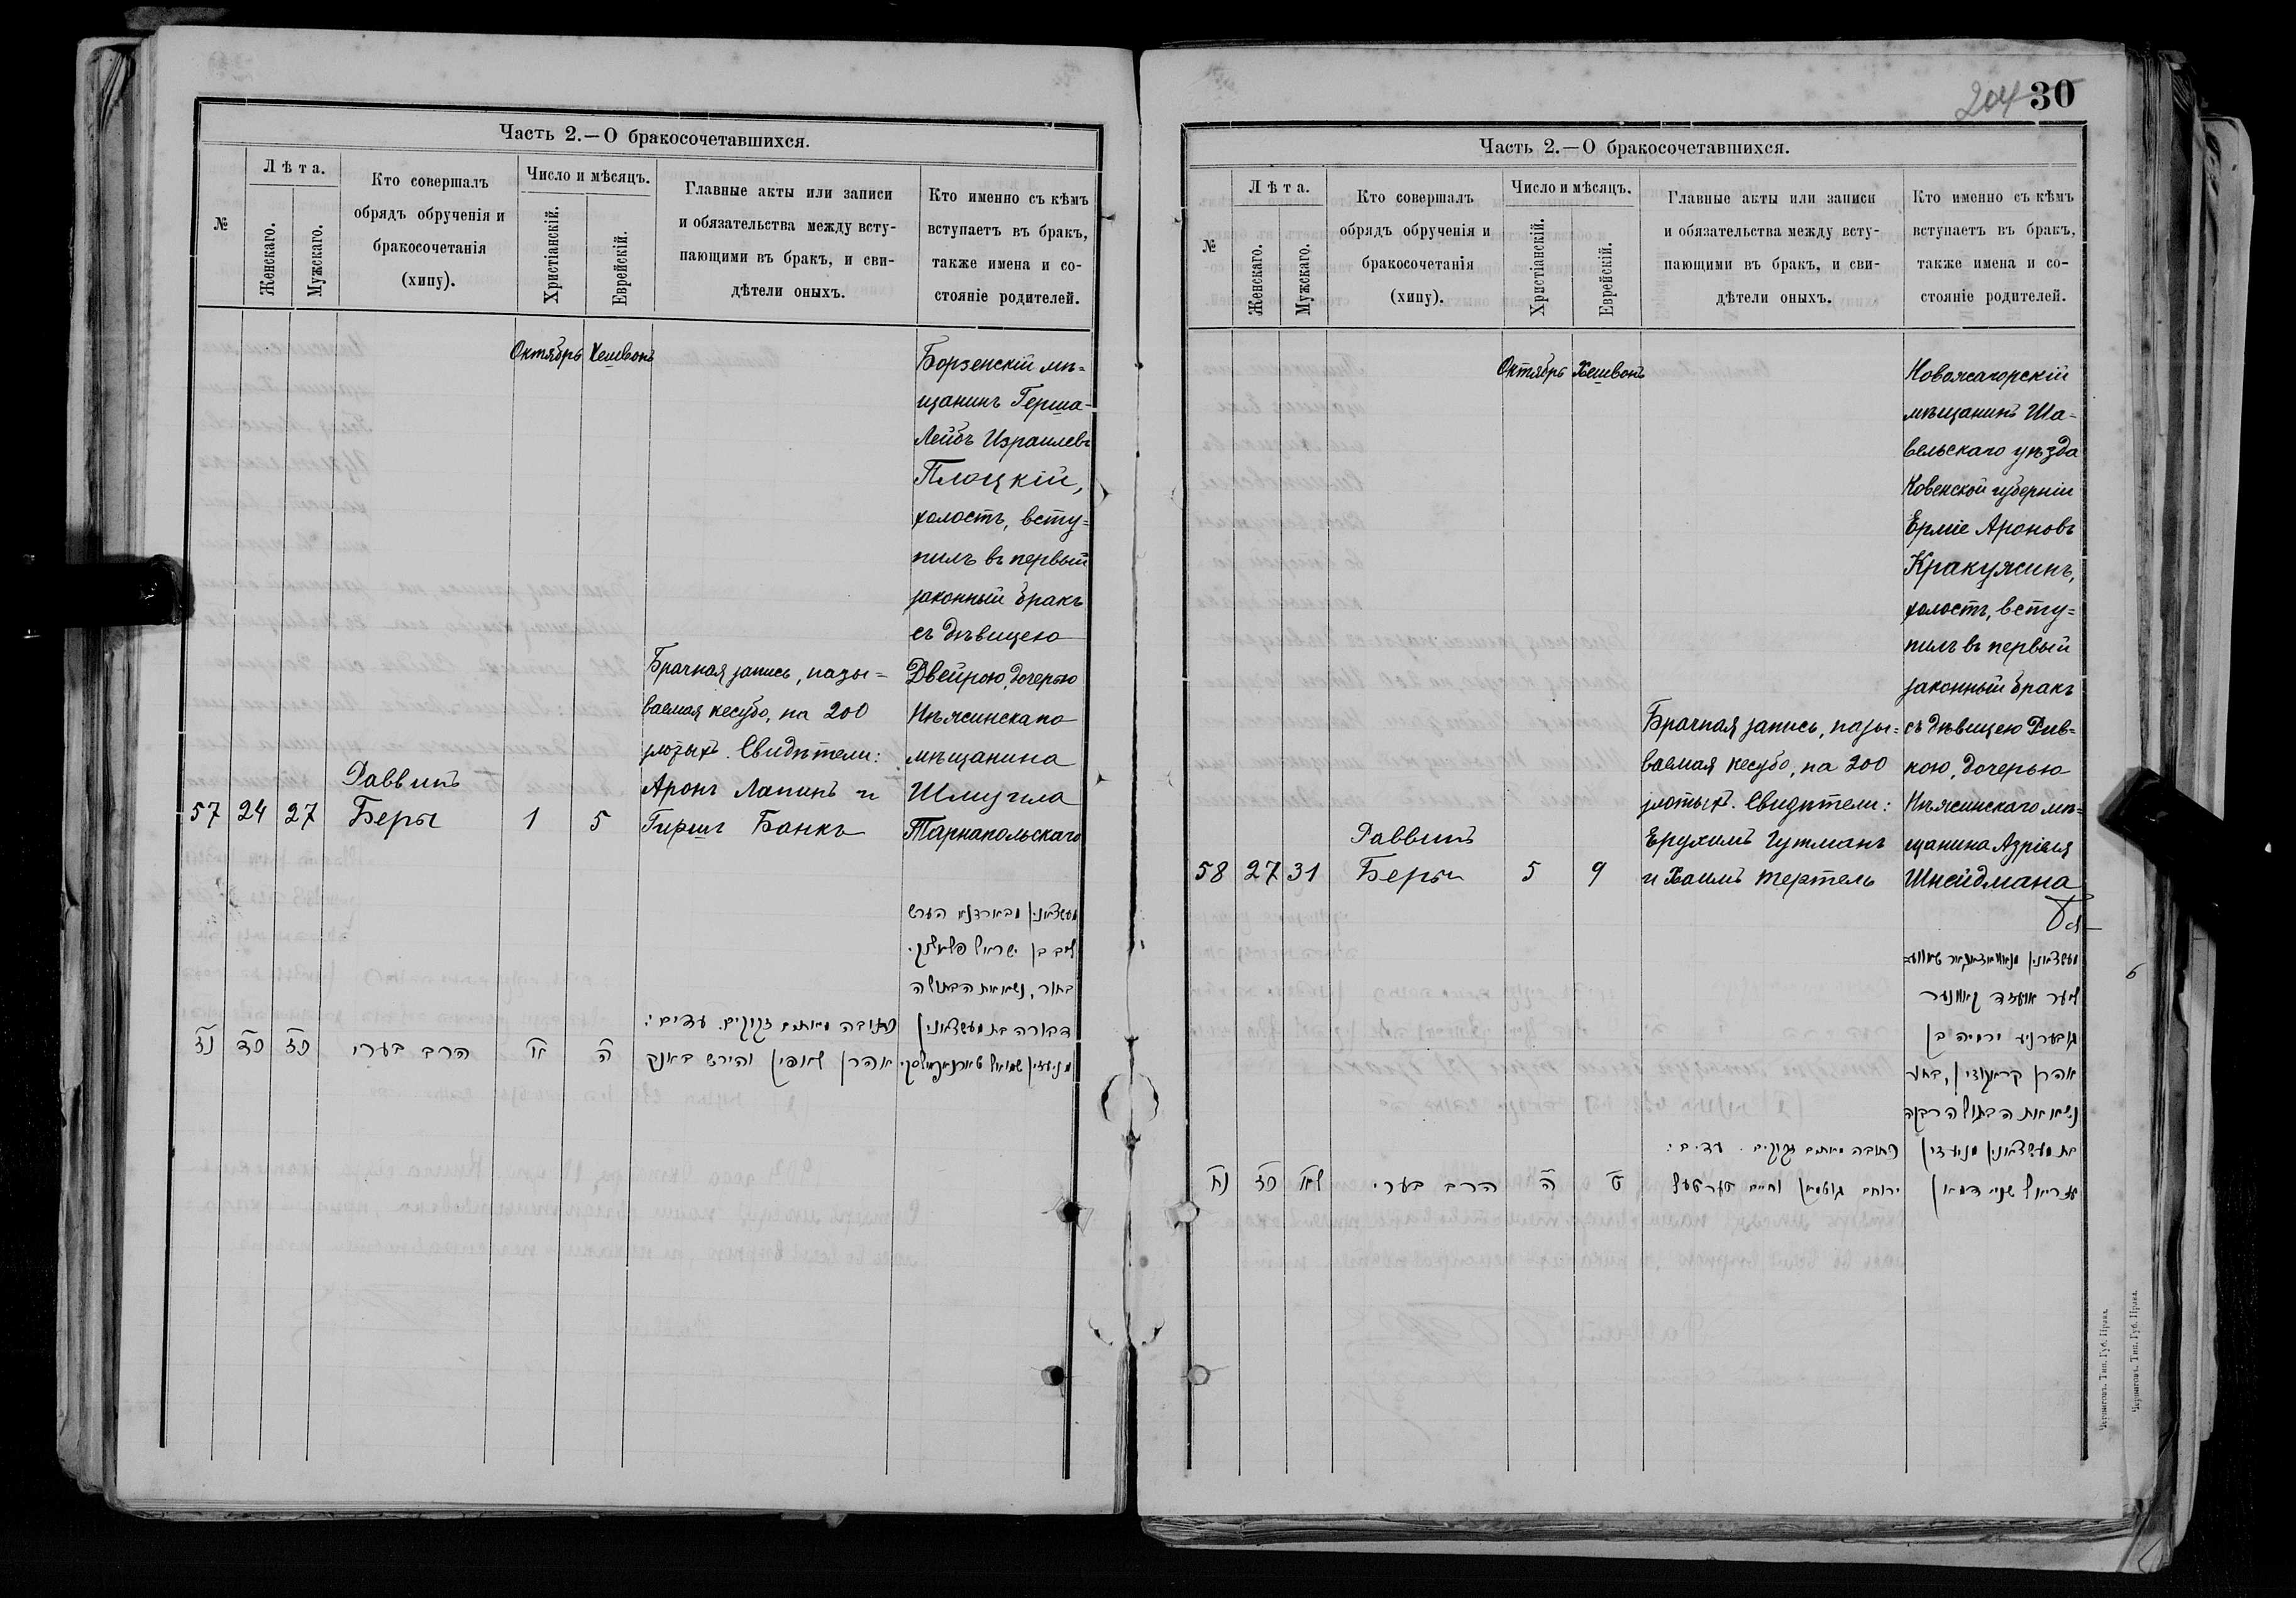 Часть 2.—О бракосочетавшихся.
№
Лѣта.
Женскаго.
Мужскаго.
Кто совершалъ
обрядъ обрученія и
бракосочетанія
(хипу).
Число и мѣсяцъ.
Христіанскій.
Еврейскій.
Главные акты или записи
и обязательства между всту-
пающими въ бракъ, и сви-
дѣтели оныхъ.
Кто именно съ кѣмъ
вступаетъ въ бракъ,
также имена и со-
стояніе родителей.
Октябрь Хешвонъ
57 24 27
Раввинъ
Беры
1 5
Брачная запись, назы=
ваемая кесубо, на 200
злотыхъ. Свидѣтели:
Аронъ Лапинъ и
Гиршъ Банкъ
Борзенскій мѣ=
щанинъ Герша-
Лейбъ Израилевъ
Плоцкій,
холостъ, всту=
пилъ въ первый
законный бракъ
съ дѣвицею
Двейрою, дочерью
Нѣжинскаго
мѣщанина
Шмуила
Тарнапольскаго
ליב בן ישראל
בחור, נשא את הבתולה
דבורה בת
כתובה מאתים זקוקים. עדים:
אהרן לאפין והירש באנק
נז כד כז הרב בערי א ה
204 30
Часть 2.—О бракосочетавшихся.
№
Лѣта.
Женскаго.
Мужскаго.
Кто совершалъ
обрядъ обрученія и
бракосочетанія
(хипу).
Число и мѣсяцъ.
Христіанскій.
Еврейскій.
Главные акты или записи
и обязательства между всту-
пающими въ бракъ, и сви-
дѣтели оныхъ.
Кто именно съ кѣмъ
вступаетъ въ бракъ,
также имена и со-
стояніе родителей.
Октябрь Хешвонъ
58 27 31
Раввинъ
Беры
5 9
Брачная запись, назы=
ваемая кесубо, на 200
злотыхъ. Свидѣтели:
Ерухимъ Гутманъ
и Хаимъ Тертель
Новожагорскій
мѣщанинъ Ша-
вельскаго уѣзда
Ковенской губерніи
Ермie Ароновъ
Кракужинъ,
холостъ, всту=
пилъ въ первый
законный бракъ
съ дѣвицею Рив-
кою, дочерью
Нѣжинскаго мѣ=
щанина Азріеля
Шнейдмана
ירמיה בן
אהרן
נשא את הבתולה רבקה
כתובה מאתים זקוקים. עדים:
ירוחם גוטמאן וחיים טערטעל
נח כז לא הרב בערי ה ט
6
Черниговъ. Тип. Губ. Правл.
Черниговъ. Тип. Губ. Правл.